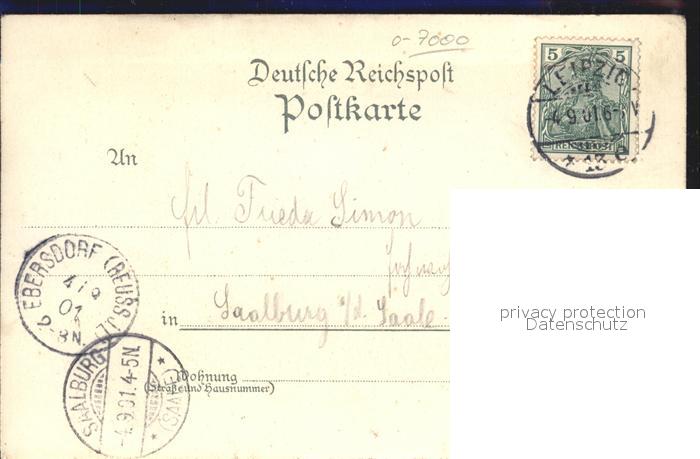 0-7000
Deutsche Reichspost
Postkarte
5 5
REICHSPOST
LEIPZIG
4.9.01.6-7V
* 13 e
An
Frl. Frieda Simon
in Saalburg a/d. Saale.
EBERSDORF (REUSS J/L)
4/9
01
2-3N.
SAALBURG
4.9.01.4-5N.
* (SAALE) *
Wohnung
(Straße und Hausnummer)
privacy protection
Datenschutz